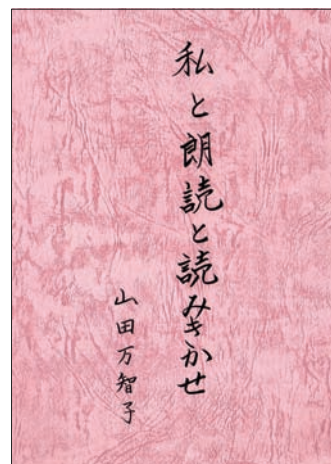 私と朗読と読みきかせ
山田万智子